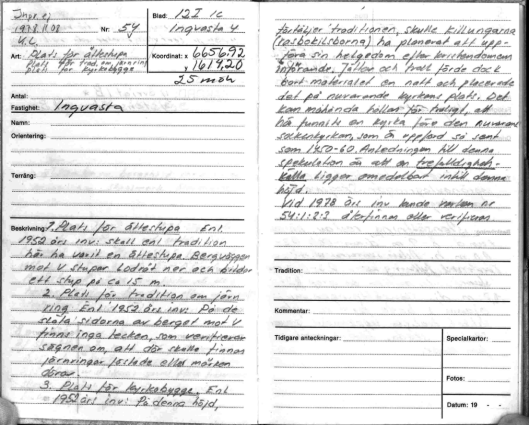 Inpr. ej
1978.11.08
U.L.
Nr: 54
Blad: 12I 1c
Ingvasta 4
Art: Plats för ättestupa
Plats för trad. om järnring
plats för kyrkobygge
Koordinat: x 6656.92
y 1619.20
25 möh
Antal:
Fastighet: Ingvasta
Namn:
Orientering:
Terräng:
Beskrivning: 1. Plats för ättestupa Enl.
1952 års inv: skall enl tradition
här ha varit en ättestupa. Bergväggen
mot V stupar lodrät ner och bildar
ett stup på ca 15 m.
2. Plats för tradition om järn
ring Enl 1952 års inv: På de
skåla sidorna av berget mot V
finns inga tecken, som verifierar
sägnen om, att där skulle finnas
järnringar fästade eller märken
därav.
3. Plats för kyrkobygge. Enl
1952 års inv: På denna höjd,
förtäljer traditionen, skulle killungarna
(rasbokilsborna) ha planerat att upp-
föra sin helgedom efter kristendomens
införande. Jättar och troll förde dock
bort materialet en natt och placerade
det på nuvarande kyrkans plats. Det
kan möhända hållas för troligt, att
här funnits en kyrka före den nuvarande
sockenkyrkan, som är uppförd så sent
som 1450-60. Anledningen till denna
spekulation är att en trefaldighets-
källa ligger omedelbart intill denna
höjd.
Vid 1978 års inv kunde varken nr
54:1:2:3 återfinnas eller verifieras
Tradition:
Kommentar:
Tidigare anteckningar:
Specialkartor:
Fotos:
Datum: 19 - -